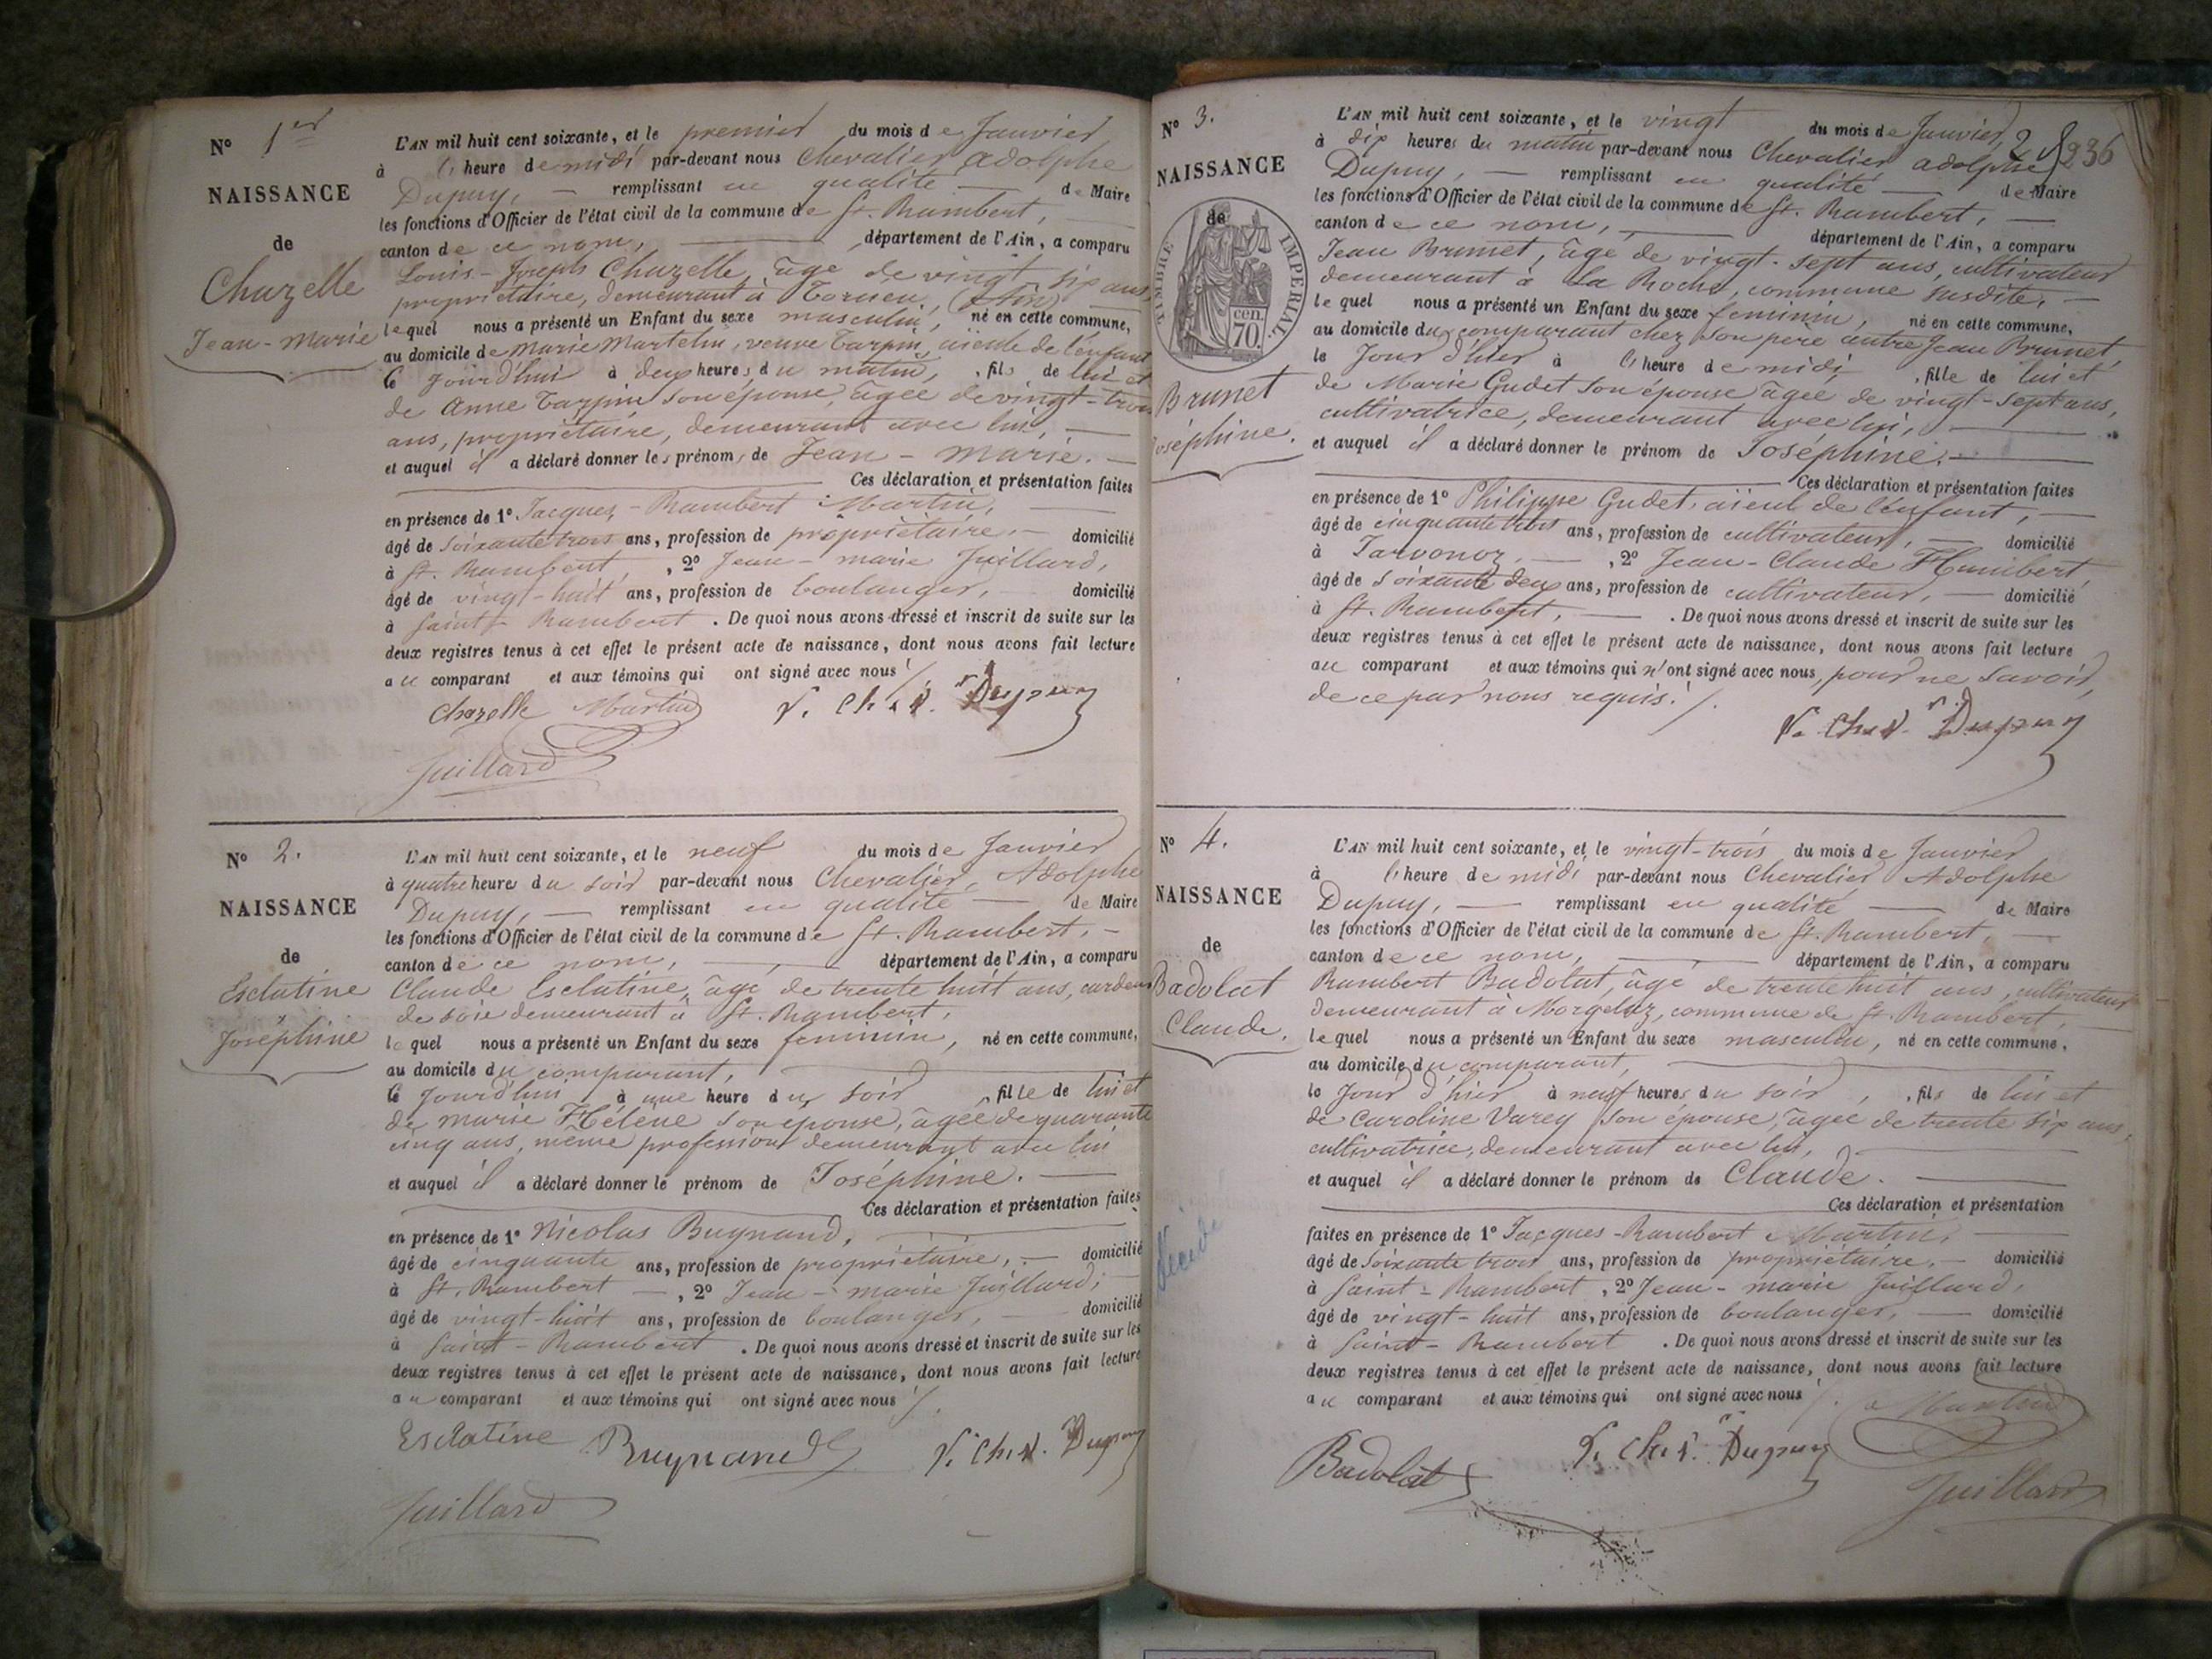 N° 1er
NAISSANCE
de
Chazelle
Jean-Marie
L'AN mil huit cent soixante, et le premier du mois de Janvier
à l'heure de midi par-devant nous Chevalier Adolphe
Dupuy, — remplissant en qualité — de Maire
les fonctions d'Officier de l'état civil de la commune de St. Rambert, —
canton de ce nom, — département de l'Ain, a comparu
Louis-Joseph Chazelle, âgé de vingt six ans,
propriétaire, demeurant à Torcieu, (Ain) —
lequel nous a présenté un Enfant du sexe masculin, né en cette commune,
au domicile de Marie Martelin, veuve Tarpin, aïeule de l'enfant
le jourd'hui à deux heures du matin, fils de lui et
de Anne Tarpin son épouse, âgée de vingt-trois
ans, propriétaire, demeurant avec lui, —
et auquel il a déclaré donner les prénoms de Jean-Marie. —
Ces déclaration et présentation faites
en présence de 1° Jacques-Rambert Martin, —
âgé de soixante trois ans, profession de propriétaire, — domicilié
à St. Rambert, 2° Jean-marie Juillard,
âgé de vingt-huit ans, profession de boulanger, — domicilié
à Saint-Rambert. De quoi nous avons dressé et inscrit de suite sur les
deux registres tenus à cet effet le présent acte de naissance, dont nous avons fait lecture
au comparant et aux témoins qui ont signé avec nous ./.
Chazelle Martin Dupuy
Juillard
N° 2.
NAISSANCE
de
Esclatine
Joséphine
L'AN mil huit cent soixante, et le neuf du mois de Janvier
à quatre heures du soir par-devant nous Chevalier, Adolphe
Dupuy, — remplissant en qualité — de Maire
les fonctions d'Officier de l'état civil de la commune de St. Rambert, —
canton de ce nom, — département de l'Ain, a comparu
Claude Esclatine, âgé de trente huit ans, cardeur
de soie demeurant à St. Rambert,
lequel nous a présenté un Enfant du sexe feminin, né en cette commune,
au domicile du comparant, —
le jourd'hui à une heure du soir, fille de lui et
de marie Hélène son épouse, âgée de quarante
cinq ans, même profession demeurant avec lui
et auquel il a déclaré donner le prénom de Joséphine. —
Ces déclaration et présentation faites
en présence de 1° Nicolas Bugnand, —
âgé de cinquante ans, profession de propriétaire, — domicilié
à St. Rambert —, 2° Jean-marie Juillard, —
âgé de vingt-huit ans, profession de boulanger, — domicilié
à Saint-Rambert. De quoi nous avons dressé et inscrit de suite sur les
deux registres tenus à cet effet le présent acte de naissance, dont nous avons fait lecture
au comparant et aux témoins qui ont signé avec nous ./.
Esclatine Bugnand Dupuy
Juillard
236
N° 3.
NAISSANCE
de
TIMBRE IMPERIAL.
70 cen.
Brunet
Joséphine.
L'AN mil huit cent soixante, et le vingt du mois de Janvier,
à dix heures du matin par-devant nous Chevalier adolphe
Dupuy, — remplissant en qualité — de Maire
les fonctions d'Officier de l'état civil de la commune de St. Rambert, —
canton de ce nom, — département de l'Ain, a comparu
Jean Brunet, âgé de vingt-sept ans, cultivateur
demeurant à La Roche, commune susdite, —
lequel nous a présenté un Enfant du sexe feminin, né en cette commune,
au domicile du comparant chez son père autre Jean Brunet,
le Jour d'hier à l'heure de midi, fille de lui et
de Marie Gudet son épouse âgée de vingt-sept ans,
cultivatrice, demeurant avec lui, —
et auquel il a déclaré donner le prénom de Joséphine. —
Ces déclaration et présentation faites
en présence de 1° Philippe Gudet, aïeul de l'enfant, —
âgé de cinquante trois ans, profession de cultivateur, — domicilié
à Javonoz, — , 2° Jean-Claude Humbert
âgé de soixante deux ans, profession de cultivateur, — domicilié
à St. Rambert, — . De quoi nous avons dressé et inscrit de suite sur les
deux registres tenus à cet effet le présent acte de naissance, dont nous avons fait lecture
au comparant et aux témoins qui n'ont signé avec nous, pour ne savoir,
de ce par nous requis. ./.
Dupuy
N° 4.
NAISSANCE
de
Badolat
Claude.
décédé
L'AN mil huit cent soixante, et le vingt-trois du mois de Janvier
à l'heure de midi par-devant nous Chevalier Adolphe
Dupuy, — remplissant en qualité — de Maire
les fonctions d'Officier de l'état civil de la commune de St. Rambert, —
canton de ce nom, — département de l'Ain, a comparu
Rambert Badolat, âgé de trente huit ans, cultivateur
demeurant à Morgelaz, commune de St. Rambert, —
lequel nous a présenté un Enfant du sexe masculin, né en cette commune,
au domicile du comparant, —
le Jour d'hier à neuf heures du soir, fils de lui et
de Caroline Varey son épouse, âgée de trente six ans,
cultivatrice, demeurant avec lui, —
et auquel il a déclaré donner le prénom de Claude. —
Ces déclaration et présentation
faites en présence de 1° Jacques-Rambert Martin, —
âgé de soixante trois ans, profession de propriétaire, — domicilié
à Saint-Rambert, 2° Jean-marie Juillard,
âgé de vingt-huit ans, profession de boulanger, — domicilié
à Saint-Rambert. De quoi nous avons dressé et inscrit de suite sur les
deux registres tenus à cet effet le présent acte de naissance, dont nous avons fait lecture
au comparant et aux témoins qui ont signé avec nous ./.
Martin
Badolat Dupuy
Juillard